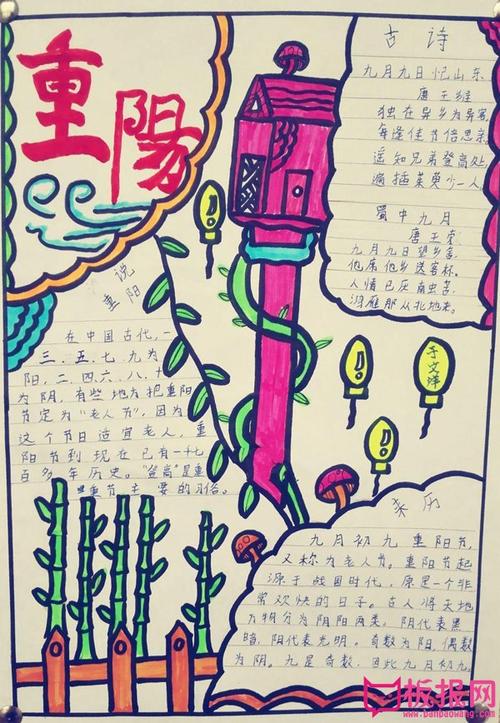 重陽
说
重阳
在中国古代,一
三.五.七.九为
阳,二.四.六.八.十
为阴,有些地方把重阳
节定为“老人节”,因为
这个节日适宜老人,重
阳节到现在已有一千七
百多年历史。“登高”是重
要节主要的习俗。
古诗
九月九日忆山东
唐王维
独在异乡为异客
每逢佳节倍思亲
遥知兄弟登高处
遍插茱萸少一人
蜀中九月
唐王
九月九日望乡台
他席他乡送客杯。
人情已厌南中苦
鸿雁那从北地来。
于文
来历
九月初九重阳节,
又称为老人节。重阳节起
源于战国时代,原是一个非
常欢快的日子。古人将天地
万物分为阴阳两类,阴代表黑
暗,阳代表光明。奇数为阳,偶数
为阴。九是奇数,因此九月初九
板报网
www.banbaowang.com